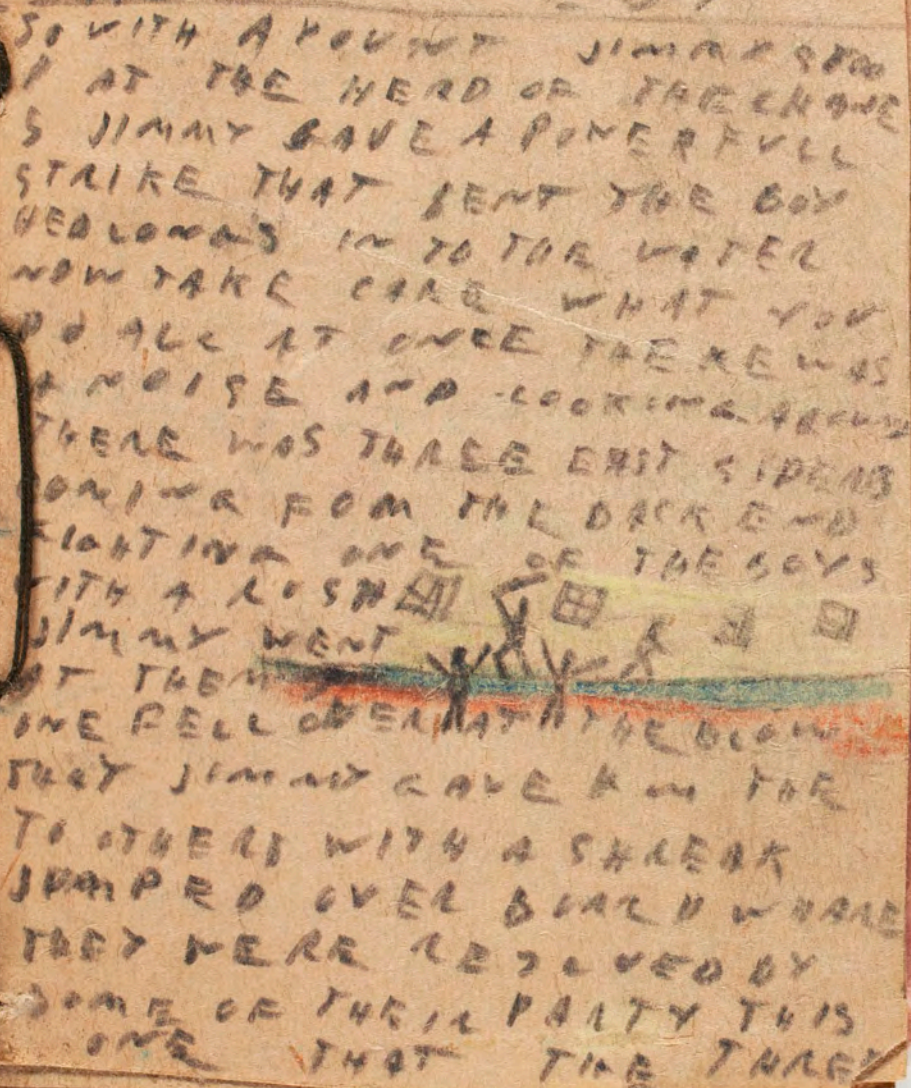 SO WITH A YOUNT JIMMY STOO
D AT THE HEAD OF THE CHANE
S JIMMY GAVE A POWERFULL
STRIKE THAT SENT THE BOY
HEDLONGS IN TO THE WATER
NOW TAKE CARE WHAT YOU
DO ALL AT ONCE THERE WAS
A NOISE AND LOOKING AROUND
THERE WAS THREE EAST SIDERS
COMING FOM THE BACK END
FIGHTING ONE OF THE BOYS
WITH A RUSH
JIMMY WENT
AT THEM
ONE FELL OVER AT THE BLOW
THAT JIMMY GAVE HIM THE
TO OTHERS WITH A SHREAK
JUMPED OVER BOARD WHARE
THEY WERE RESCUED BY
SOME OF THEIR PARTY THIS
ONE THAT THE THREE